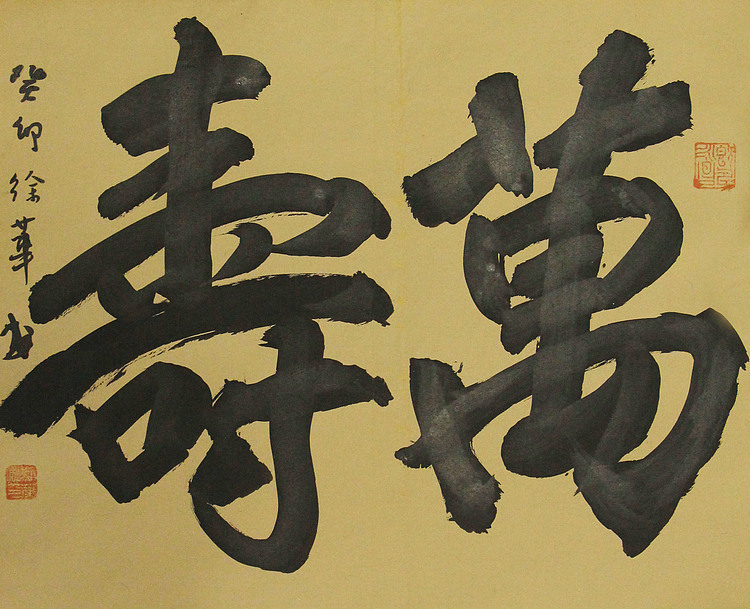 萬壽
癸卯徐華書